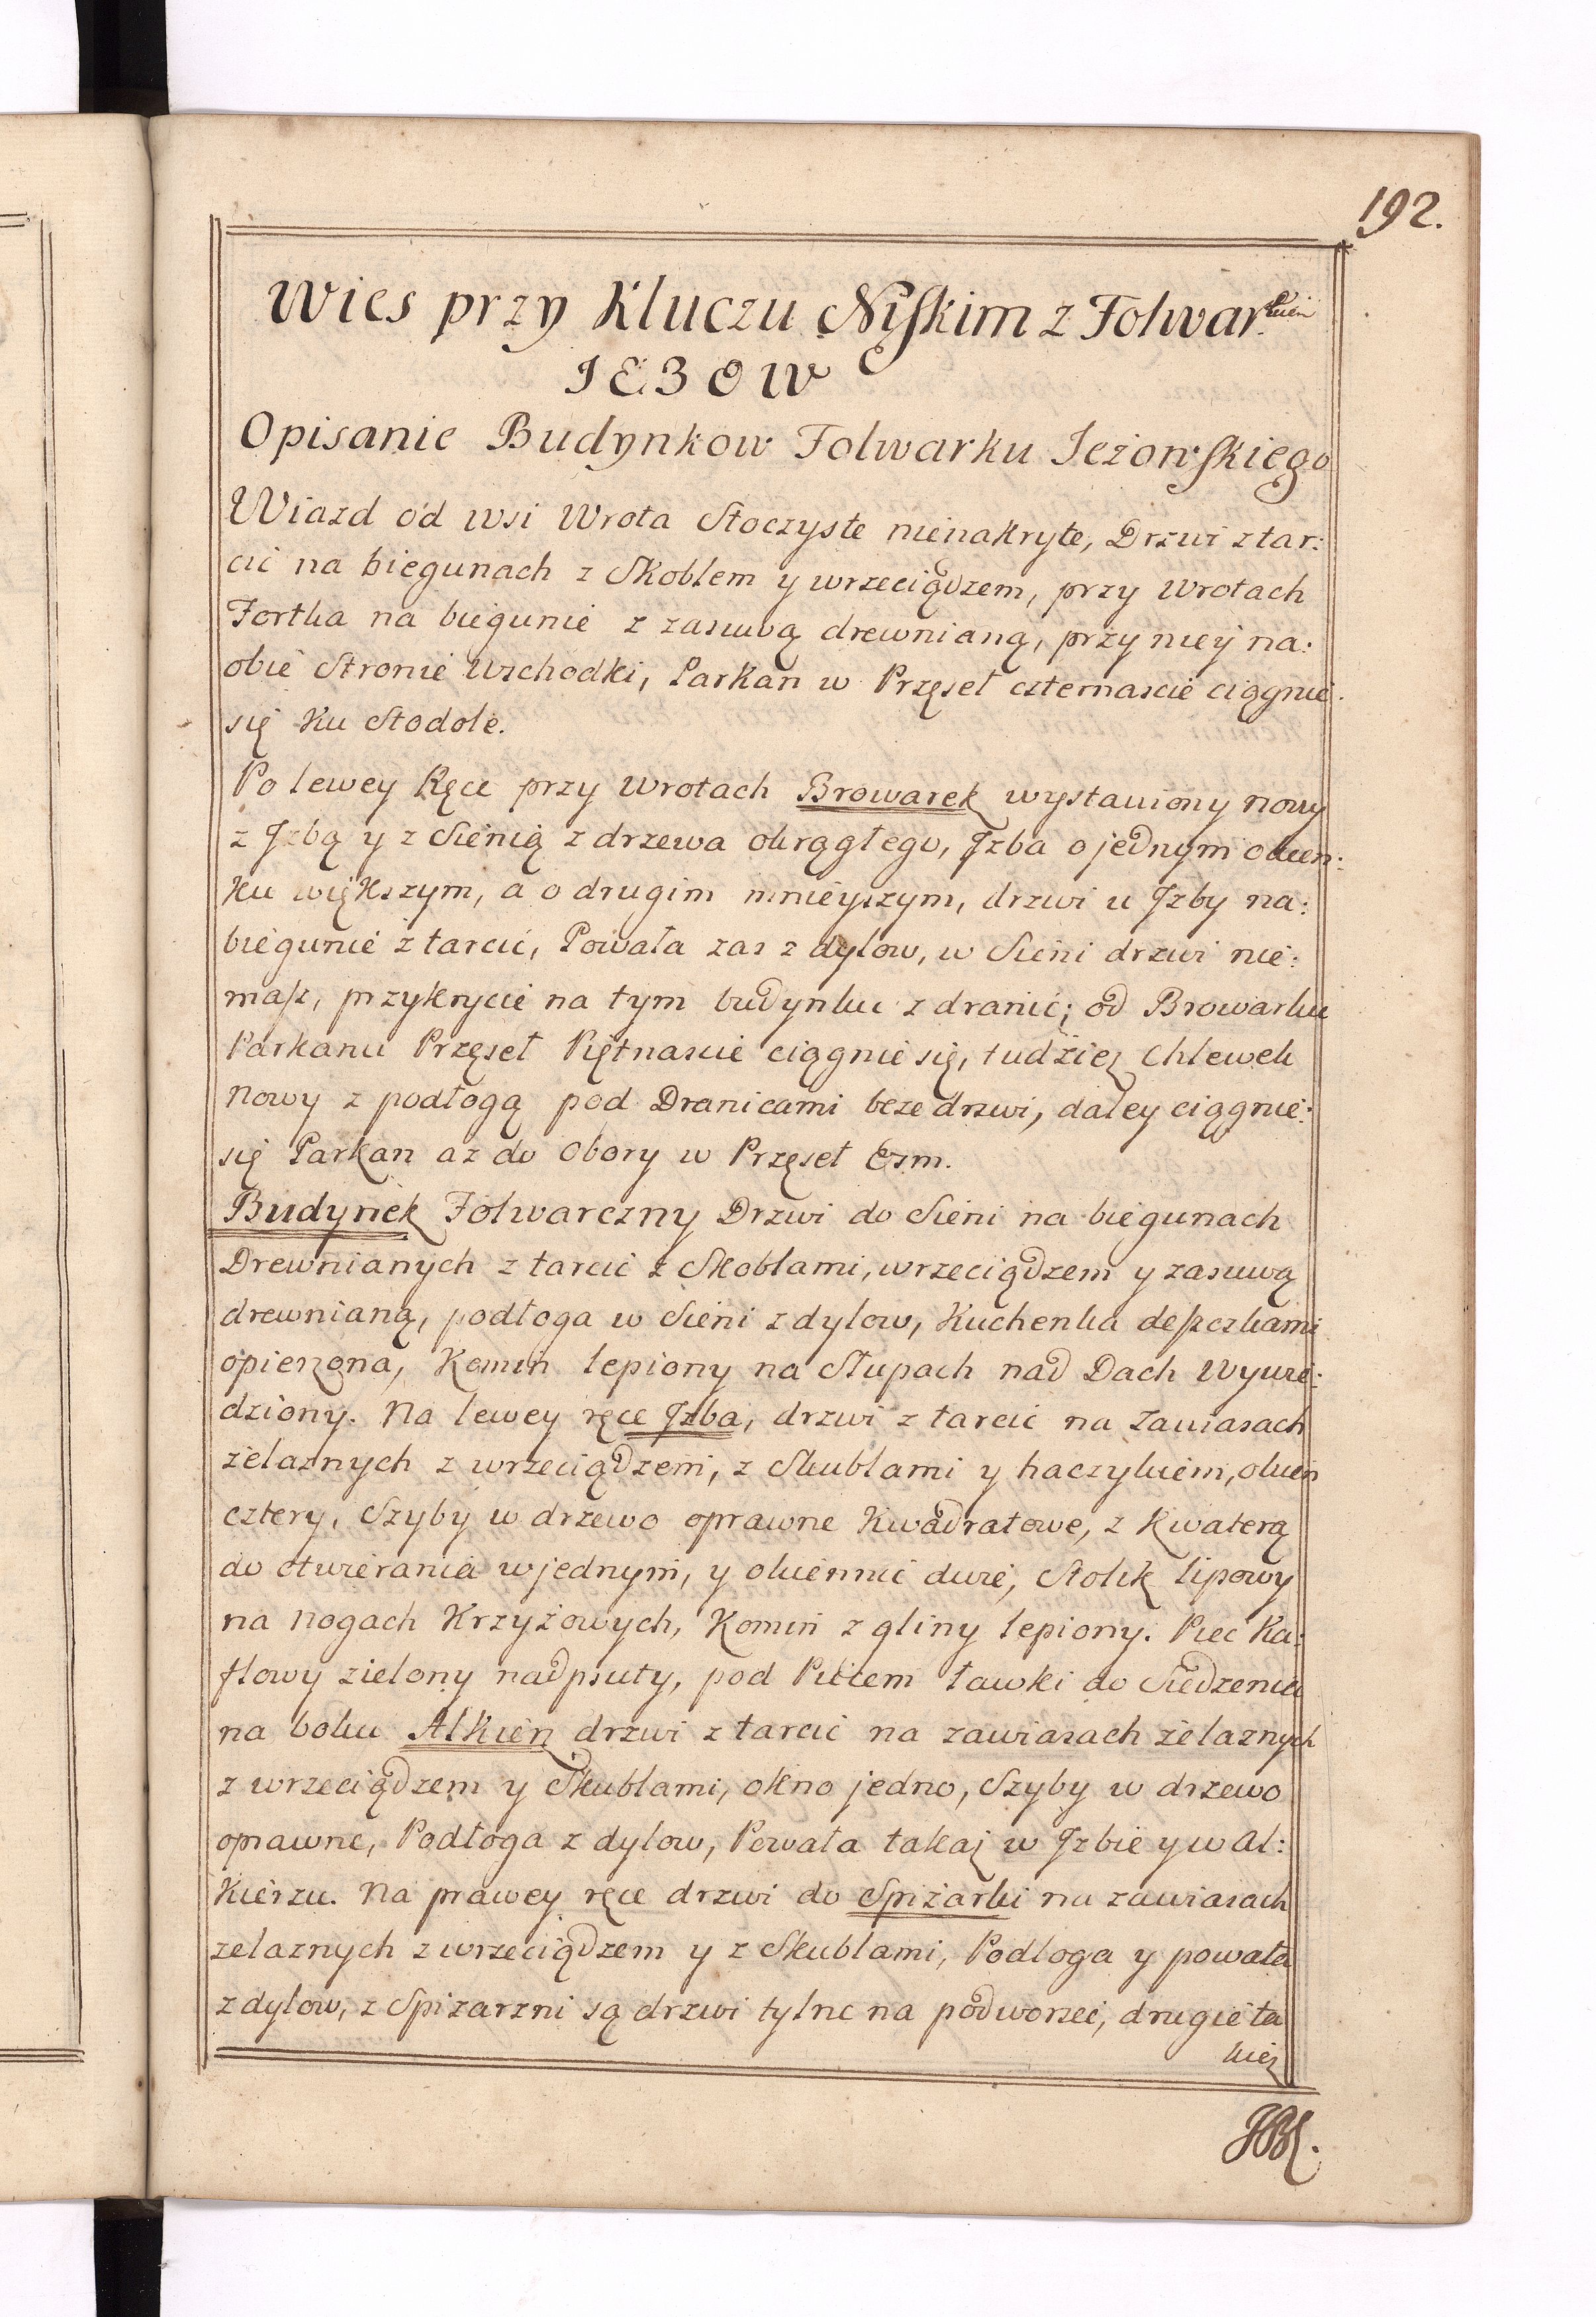 192.
Wies przy Kluczu Niskim z Folwar:kiem
JEZOW
Opisanie Budynkow Folwarku Jeżowskiego
Wiazd od wsi Wrota Stoczyste nienakryte, Drzwi z tar:
cic na biegunach z Skoblem y wrzeciądzem, przy Wrotach
Fortka na biegunie z zasuwą drewnianą, przy niey na:
obie Stronie Wschodki, Parkan w Przęseł czternascie ciągnie
się ku Stodole.
Po lewey Ręce przy Wrotach Browarek wystawiony nowy
z Jzbą y z Sienią z drzewa okrągłego, Jzba o jednym okien:
ku większym, a o drugim mnieyszym, drzwi u Jzby na:
biegunie z tarcic, Powała zas z dylow, w Sieni drzwi nie:
masz, przykrycie na tym budynku z dranic; od Browarku
Parkanu Przęseł Piętnascie ciągnie się, tudziez Chlewek
nowy z podłogą pod Dranicami beze drzwi, daley ciągnie:
się Parkan az do Obory w Przęseł Ezm.
Budynek Folwarczny Drzwi do Sieni na biegunach
Drewnianych z tarcic z Skoblami, wrzeciądzem y zasuwą
drewnianą, podłoga w Sieni z dylow, Kuchenka deszczkami
opierzona, Komin lepiony na Słupach nad Dach Wywie:
dziony. Na lewey ręce Jzba, drzwi z tarcic na Zawiasach
żelaznych z wrzeciądzem, z Skublami y haczykiem, okien
cztery, Szyby w drzewo oprawne Kwadratowe, z Kwaterą
do otwierania w jednym, y okiennic dwie, Stolik lipowy
na nogach Krzyżowych, Komin z gliny lepiony. Piec Ka:
flowy zielony nadpsuty, pod Piecem ławki do Siedzenia
na boku Alkierz drzwi z tarcic na zawiasach żelaznych
z wrzeciądzem y Skublami, okno jedno, Szyby w drzewo
oprawne, Podłoga z dylow, Powała takaz w Jzbie y w Al:
Kierzu. Na prawey ręce drzwi do Spiżarki na zawiasach
zelaznych z wrzeciądzem y z Skublami, Podłoga y powała
z dylow, z Spizarzni są drzwi tylne na podworzec, drugie ta
kiez